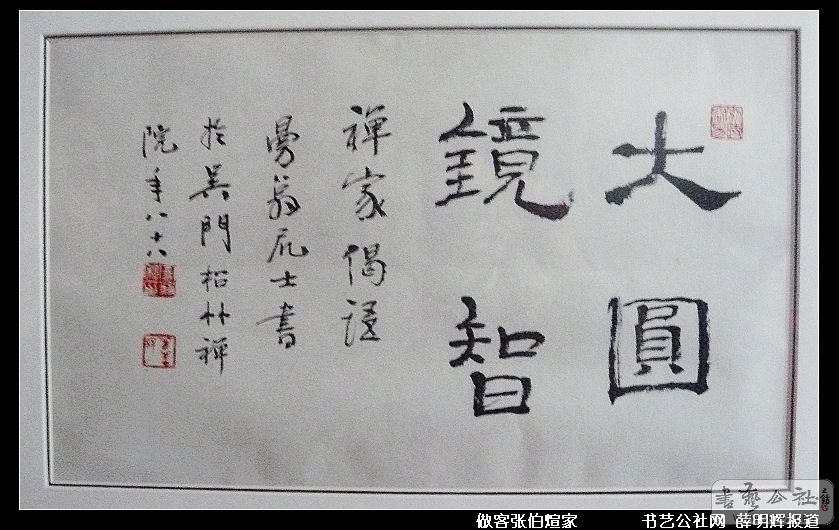 大圓
鏡智
禪家偈語
曼翁凥士書
於吳門松竹禪
院年八十八
書藝公社
做客张伯煊家 书艺公社网 薛明辉报道